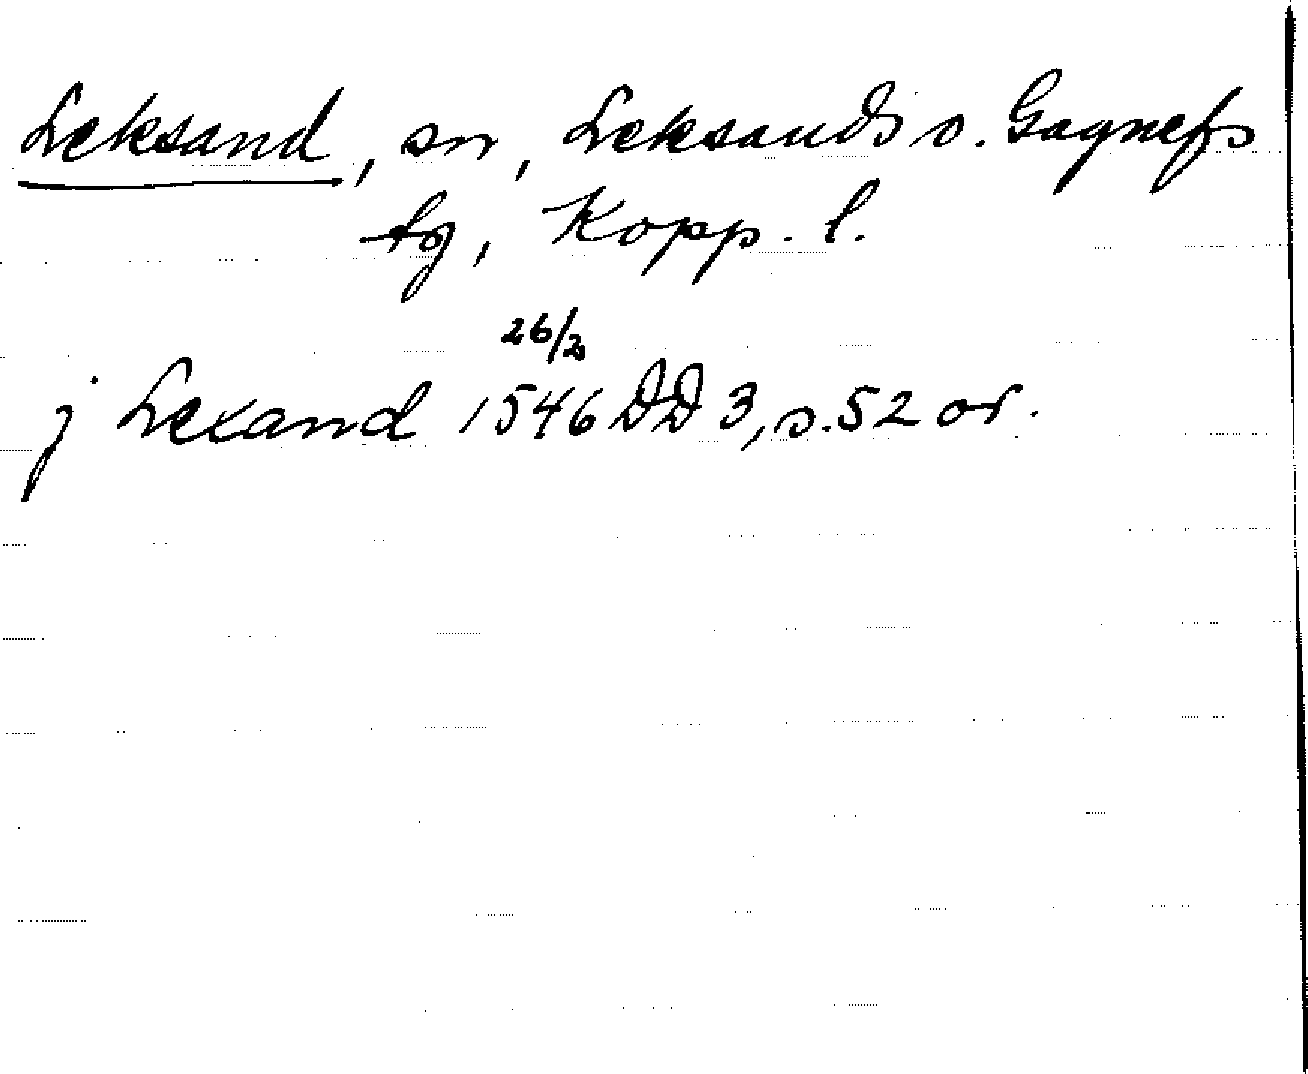 Leksand, sn, Leksands o. Gagnefs
tg, Kopp. l.
26/2
j Lexand 1546 DD 3, s. 52 or.